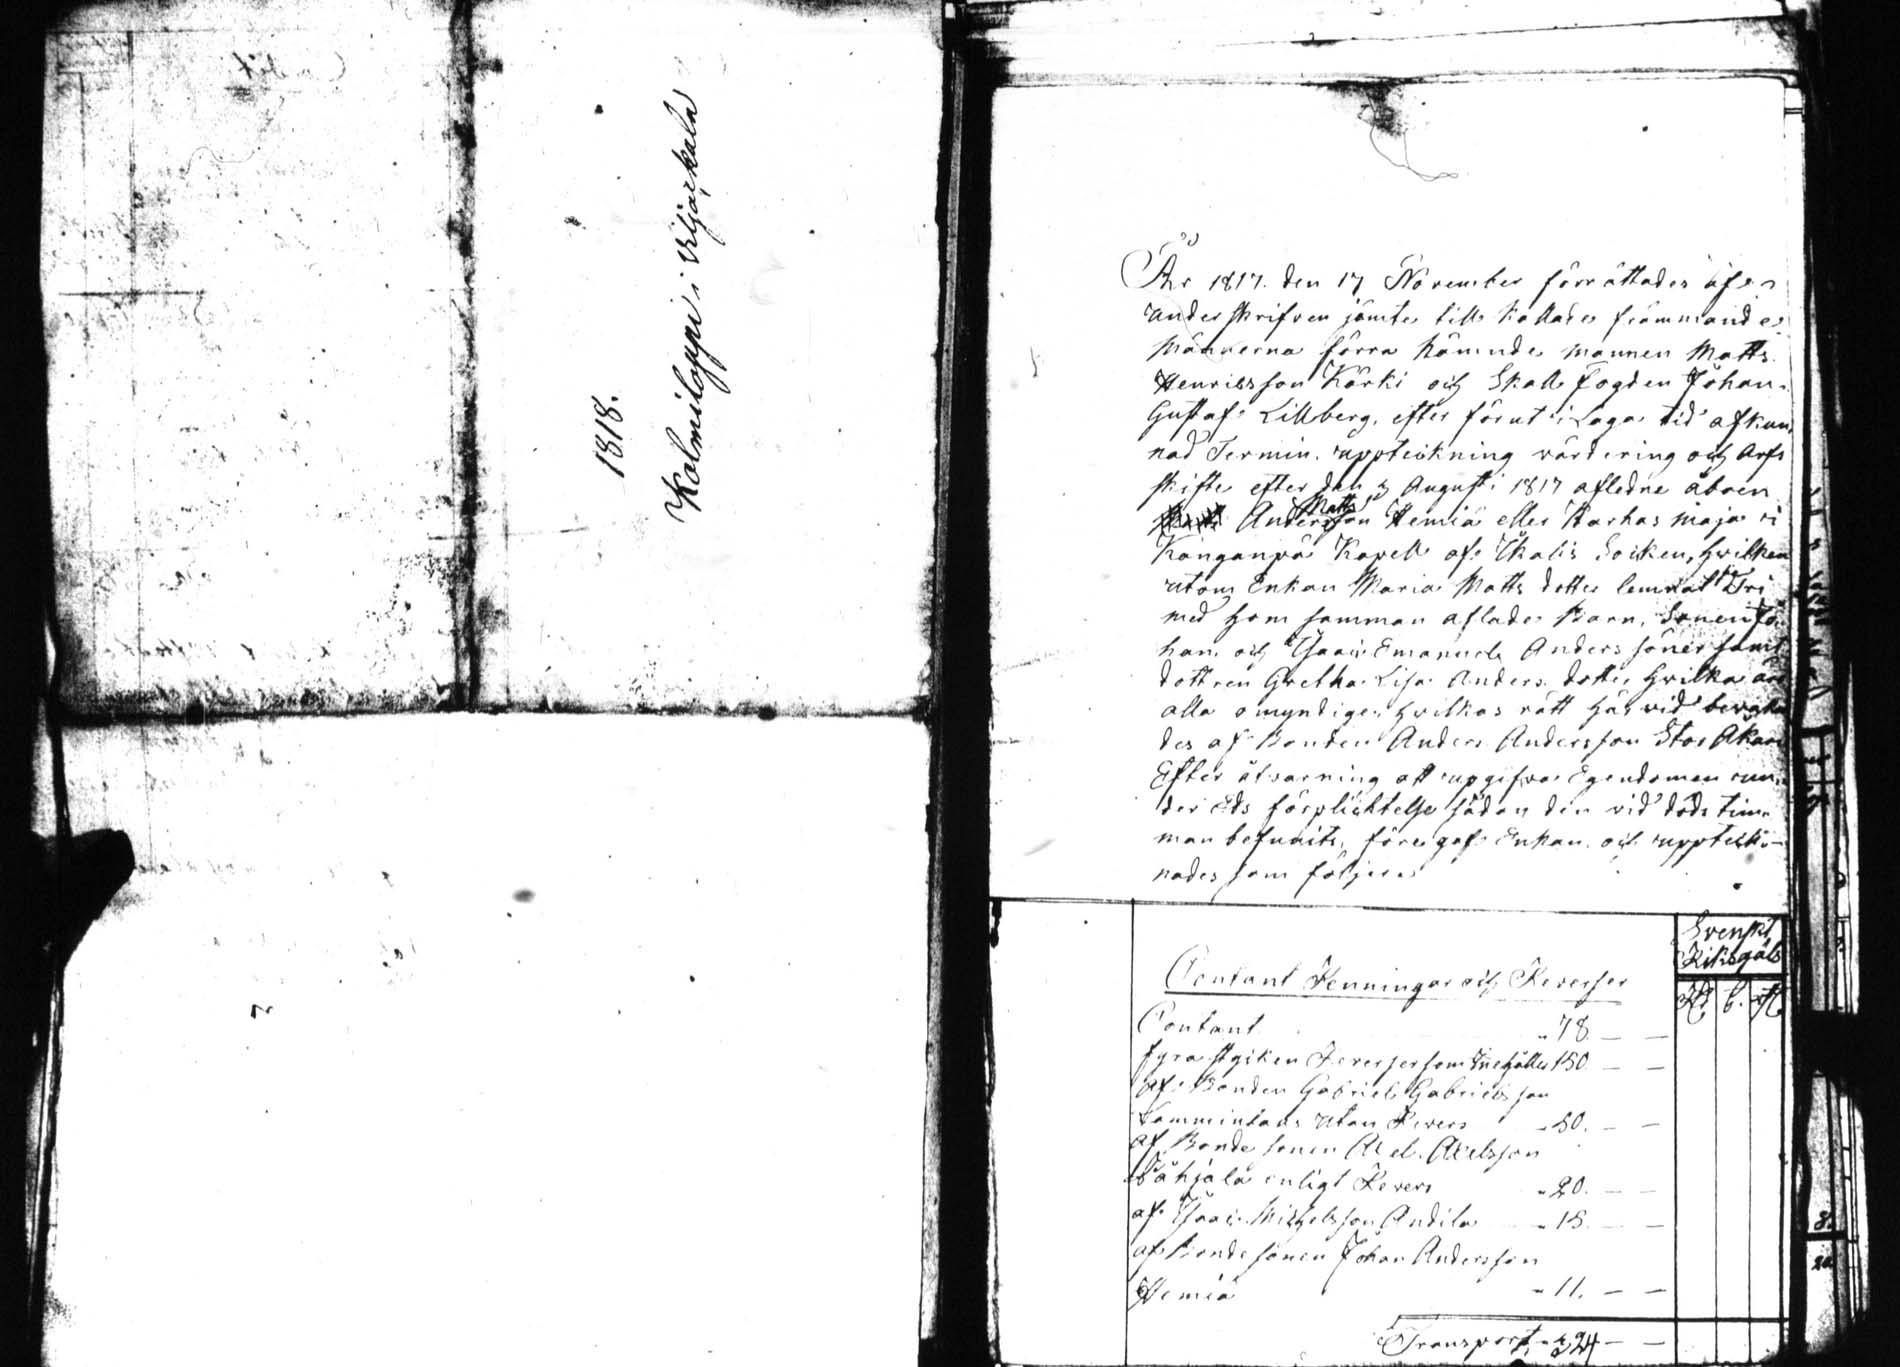 1818.
Kolmiloppi i Viljackala
År 1817. den 17 November förrättades af
underskrifven jämte till kallade främmande
männerna förra Nämnde mannen Matts
Henricsson Kärki och Skall fogden Johan
Gustaf Lillberg, efter förut i Laga tid afkun-
nad Termin, uppteckning värdering och Arfs
skifte efter den 3 Augusti 1817 afledne åboen
Matts
Andersson Hemiä eller Karhas maja i
Kånganpä Kapell af Ikalis Socken, hvilken
utom Enkan Maria Matts dotter lemnat Tri
med hom samman aflade Barn, Sonen Jo-
han och Isaac Emanuel Anders söner samt
dottren Gretha Lisa Anders dotter hvilka äro
alla omyndige, hvilkas rätt här vid bevaka
des af Bonden Anders Andersson Stor
Efter åtvarning att uppgifva Egendomen un-
der Eds förplicktelse sådan den vid döds tim-
man befunits, föregaf Enkan och uppteck-
nades som följer
Svenskt
Riksgäls
Contant Penningar och Reverser
Rd. ß. rst.
Contant " 78. — —
fyra stycken Reverser som Inehåller 150 — —
af Bonden Gabriel Gabrielsson
utan Revers " 50. — —
af Bonde sonen Axel Axelsson
enligt Revers " 20. — —
af Isaac Michelsson Andila " 15. — —
af Bondesonen Johan Andersson
Hemiä " 11. — —
Transport " 324 — —